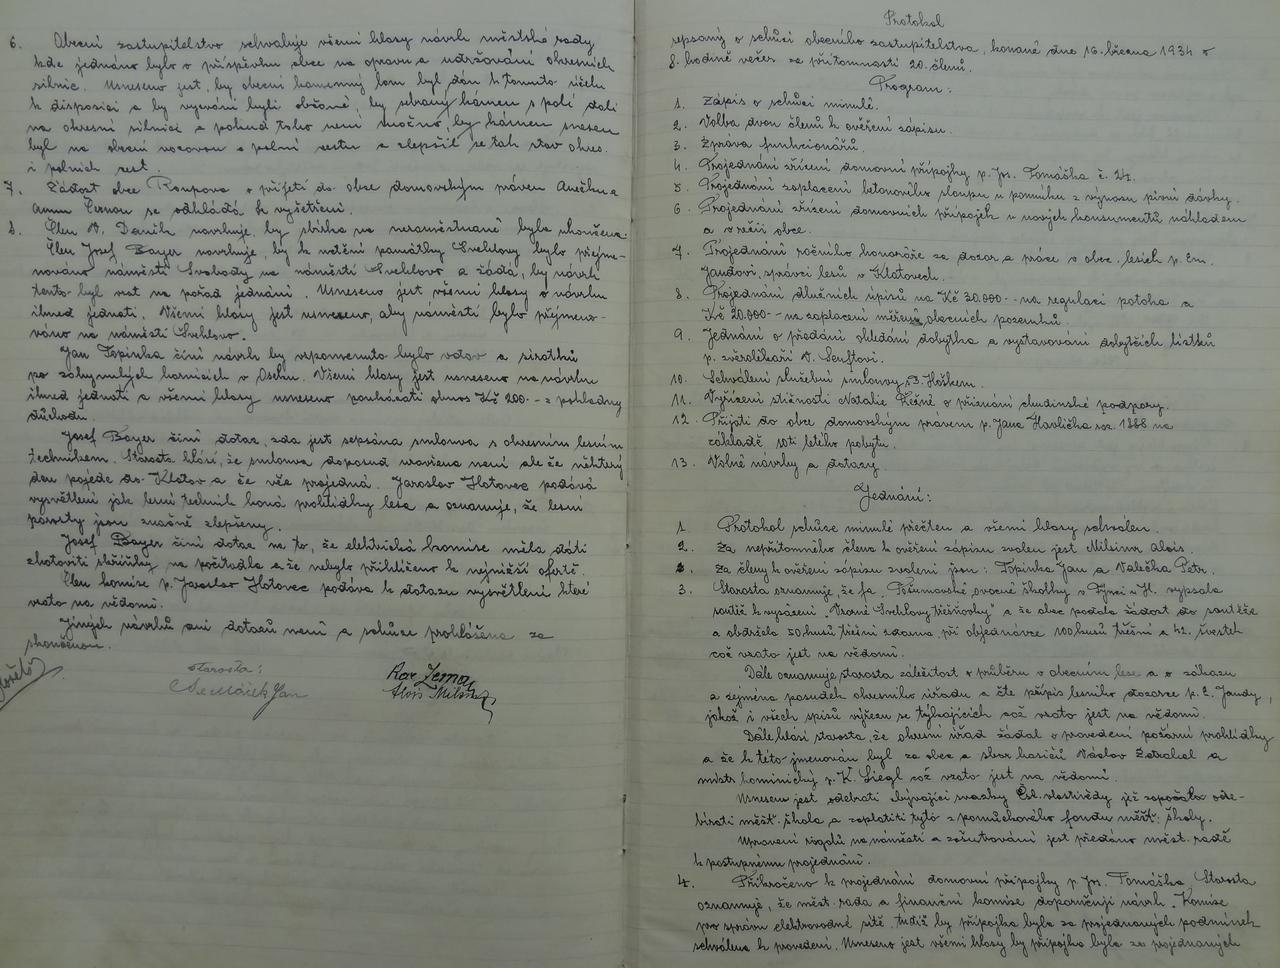 6. Obecní zastupitelstvo schvaluje všemi hlasy návrh městské rady
kde jednáno bylo o příspěvku obce na opravu a udržování okresních
silnic. Usneseno jest, by obecní kamenný lom byl dán k tomuto účelu
k disposici a by vyzváni byli občané, by sebraný kámen s polí dali
na okresní silnici a pokud toho není možno, by kámen snesen
byl na obecní vozovou a polní cestu a zlepšil se tak stav okres.
i polních cest.
7. Žádost obce Roupova o přijetí do obce domovským právem
Černou se odkládá k vyšetření.
8. Člen V. Daněk navrhuje, by sbírka na nezaměstnané byla ukončena.
Člen Josef Bayer navrhuje, by k uctění památky Švehlovy bylo přejme-
nováno náměstí Svobody na náměstí Švehlovo a žádá, by návrh
tento byl vzat na pořad jednání. Usneseno jest všemi hlasy o návrhu
ihned jednati. Všemi hlasy jest usneseno, aby náměstí bylo přejmeno-
váno na náměstí Švehlovo.
Jan Topinka činí návrh by vzpomenuto bylo vdov a sirotků
po zahynulých hornících v Oseku. Všemi hlasy jest usneseno na návrhu
ihned jednati a všemi hlasy usneseno poukázati obnos Kč 200.- z pokladny
důchodu.
Josef Bayer činí dotaz, zda jest sepsána smlouva s okresním lesním
technikem. Starosta hlásí, že smlouva doposud uzavřena není ale že některý
den pojede do Klatov a že vše projedná. Jaroslav Hotovec podává
vysvětlení jak lesní technik koná prohlídky lesa a oznamuje, že lesní
porosty jsou značně zlepšeny.
Josef Bayer činí dotaz na to, že elektrická komise měla dáti
zhotoviti skříňky na počítadla a že nebylo přihlíženo k nejnižší ofertě.
Člen komise p. Jaroslav Hotovec podává k dotazu vysvětlení které
vzato na vědomí.
Jiných návrhů ani dotazů není a schůze prohlášena za
skončenou.
starosta:
Sedláček Jan
Kar. Zeman
Alois Milsimr
Protokol
sepsaný o schůzi obecního zastupitelstva, konané dne 16. března 1934 v
8. hodině večer za přítomnosti 20. členů.
Program:
1. Zápis o schůzi minulé.
2. Volba dvou členů k ověření zápisu.
3. Zpráva funkcionářů.
4. Projednání zřízení domovní přípojky p. Jos. Tomáška č. 24.
5. Projednání zaplacení betonového sloupu u pomníku z výnosu pivní dávky.
6. Projednání zřízení domovních přípojek u nových konsumentů nákladem
a v režii obce.
7. Projednání ročního honoráře za dozor a práce v obec. lesích p. Em.
Jandovi, správci lesů v Klatovech.
8. Projednání dlužních úpisů na Kč 30.000.- na regulaci potoka a
Kč 20.000.- na zaplacení měření obecních pozemků.
9. Jednání o předání ohledání dobytka a vystavování dobytčích lístků
p. zvěrolékaři V. Senftovi.
10. Schválení služební smlouvy s J. Hoškem.
11. Vyřízení stížnosti Natalie Řežné o přiznání chudinské podpory.
12. Přijetí do obce domovským právem p. Jana Havlíčka roz. 1888 na
základě 10ti letého pobytu.
13. Volné návrhy a dotazy.
Jednání:
1. Protokol schůze minulé přečten a všemi hlasy schválen.
2. Za nepřítomného člena k ověření zápisu zvolen jest Milsimr Alois.
2. Za členy k ověření zápisu zvoleni jsou: Topinka Jan a Valečka Petr.
3. Starosta oznamuje, že fa. Pošumavské ovocné školky v Týnci u H. vypsala
soutěž k vysázení "Vzorné Švehlovy třešňovky" a že obec podala žádost do soutěže
a obdržela 50 kusů třešní zdarma, při objednávce 100 kusů třešní a 42. švestek
což vzato jest na vědomí.
Dále oznamuje starosta záležitost o průběru v obecním lese a o zákazu
a zejména posudek okresního úřadu a čte přípis lesního dozorce p. E. Jandy,
jakož i všech spisů výřezu se týkajících což vzato jest na vědomí.
Dále hlásí starosta, že okresní úřad žádal o provedení požární prohlídky
a že k této jmenován byl za obec a sbor hasičů Václav Zetrahal a
mistr kominický p. K. Liegl což vzato jest na vědomí.
Usneseno jest odebrati zbývající svazky Čsl. vlastivědy jež započala ode-
bírati měšť. škola a zaplatiti tyto z pomůckového fondu měšť. školy.
Upravení rigolů na náměstí a zaštěrkování jest předáno měst. radě
k postupnému projednání.
4. Přikročeno k projednání domovní přípojky p. Jos. Tomáška, Starosta
oznamuje, že měst. rada a finanční komise doporučují návrh. Komise
pro správu elektrovodné sítě, tudíž by přípojka byla za projednaných podmínek
schválena k provedení. Usneseno jest všemi hlasy by přípojka byla za projednaných